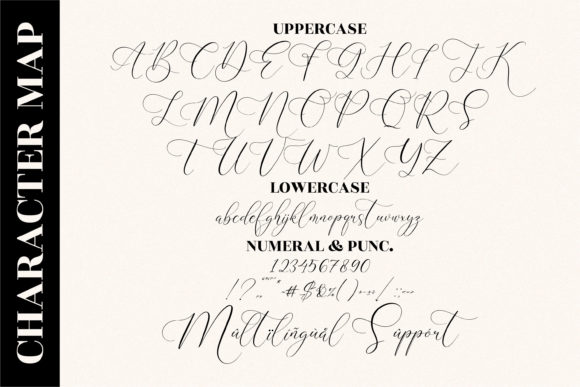 CHARACTER MAP
UPPERCASE
A B C D E F G H I J K
L M N O P Q R S
T U V W X Y Z
LOWERCASE
abcdefghijklmnopqrstuvwxyz
NUMERAL & PUNC.
1234567890
Múltïlíñgùål Sùppórt